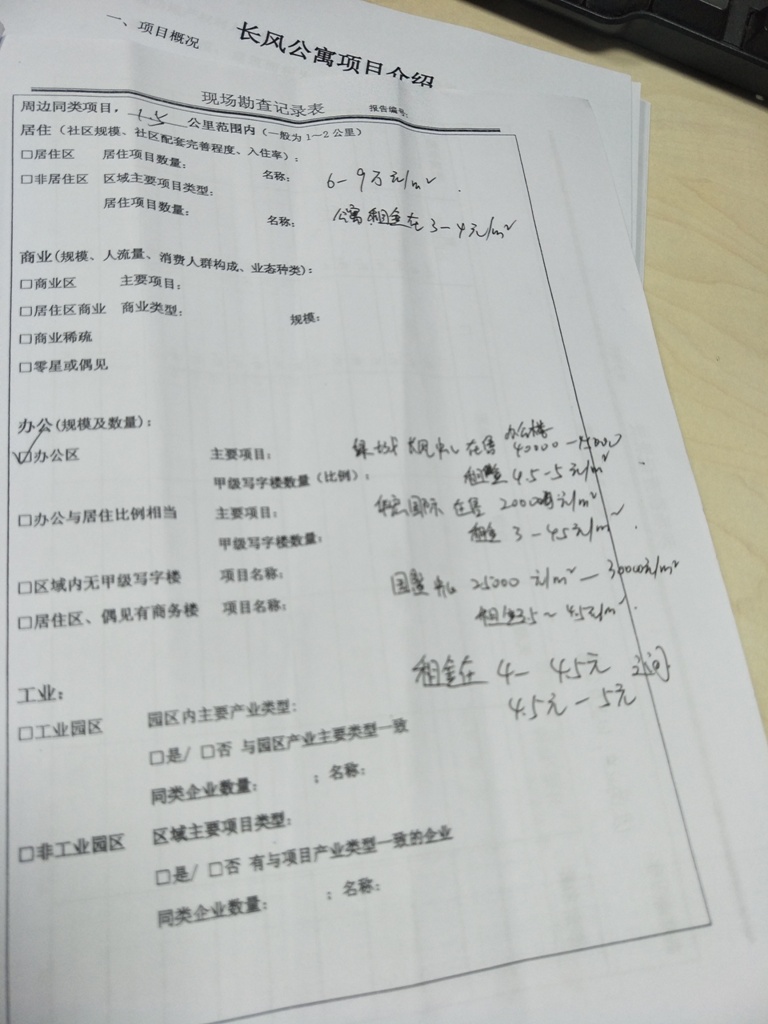 长风公寓项目介绍
一、项目概况
现场勘查记录表 报告编号:
周边同类项目, 1.5 公里范围内(一般为1~2公里)
居住(社区规模、社区配套完善程度、入住率):
□居住区 居住项目数量: 名称: 6-9万元/m²
□非居住区 区域主要项目类型:
居住项目数量: 名称: 公寓租金在3-4元/m²
商业(规模、人流量、消费人群构成、业态种类):
□商业区 主要项目:
□居住区商业 商业类型: 规模:
□商业稀疏
□零星或偶见
办公(规模及数量):
☑办公区 主要项目: 绿地 长风中心 在售 办公楼 40000-
甲级写字楼数量(比例): 租金 4.5-5元/m²
□办公与居住比例相当 主要项目: 国际 在售 元/m²
甲级写字楼数量: 租金 3-4.5元/m²
□区域内无甲级写字楼 项目名称: 国盛中心 25000元/m²-30000元/m²
□居住区、偶见有商务楼 项目名称: 租金3.5~4.5元/m²
租金在 4-4.5元 之间
4.5元-5元
工业:
□工业园区 园区内主要产业类型:
□是/ □否 与园区产业主要类型一致
同类企业数量: ; 名称:
□非工业园区 区域主要项目类型:
□是/ □否 有与项目产业类型一致的企业
同类企业数量: ; 名称: